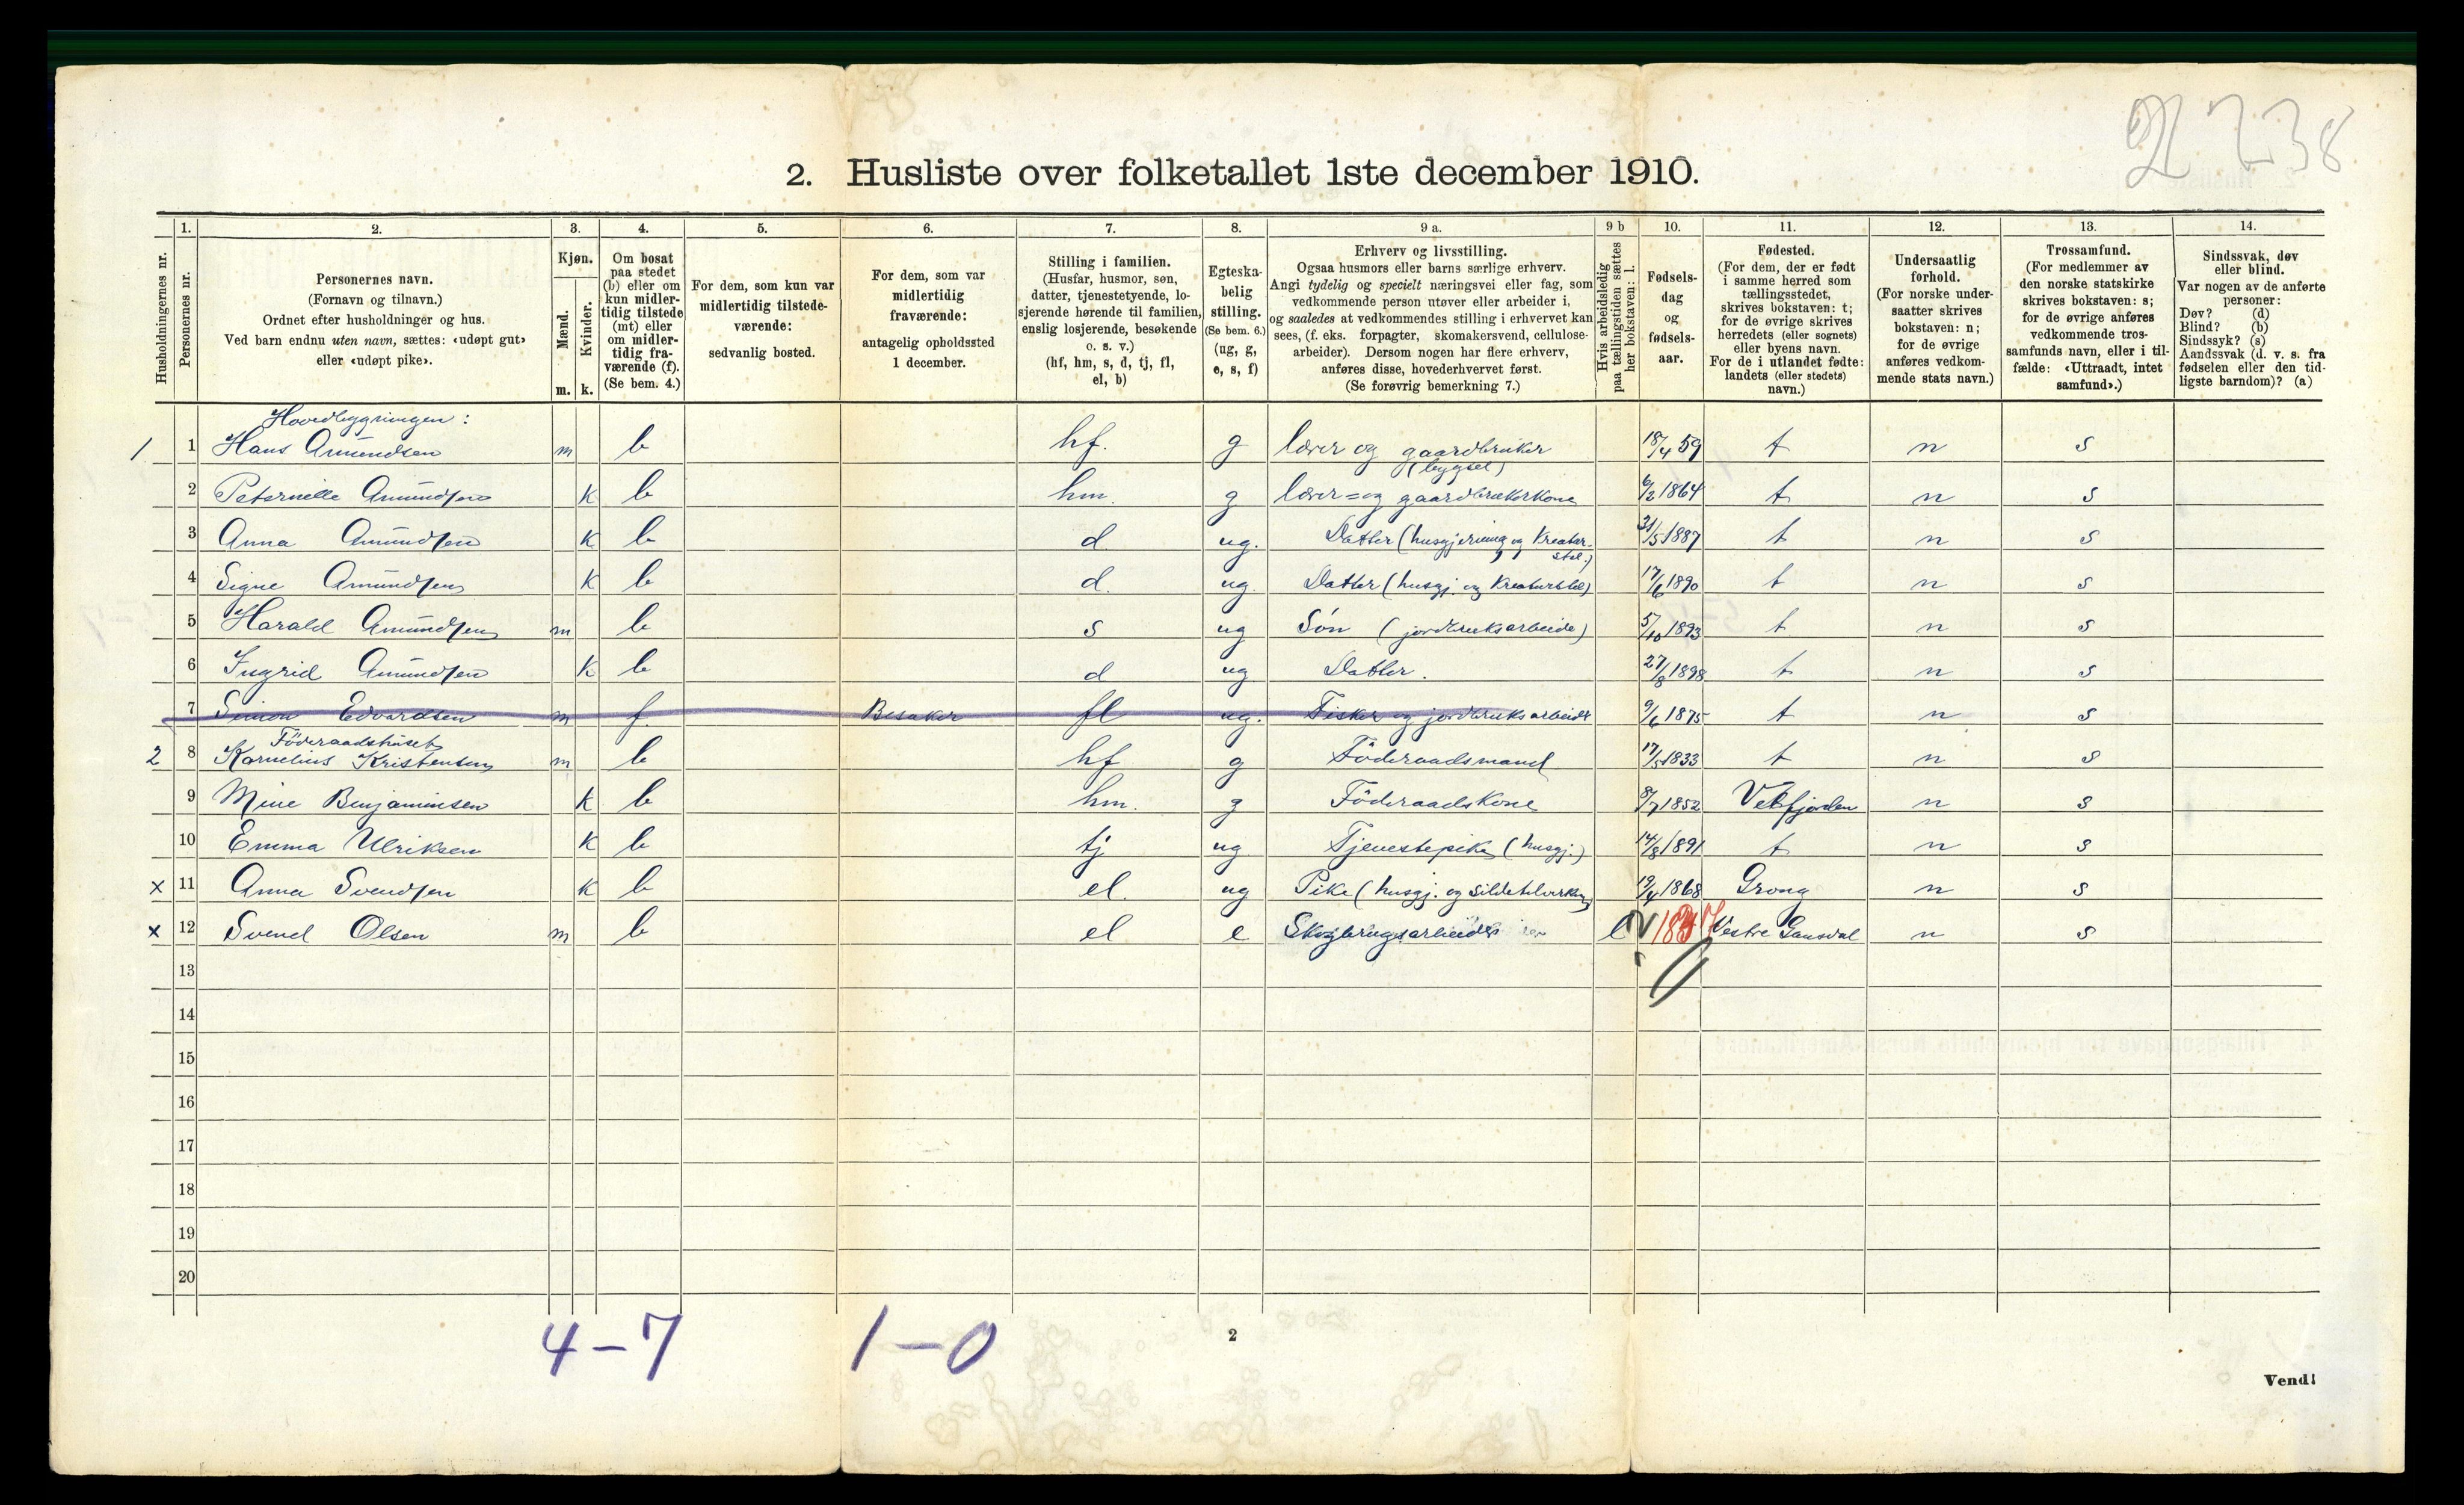 238
2. Husliste over folketallet 1ste december 1910.
Husholdningernes nr.
1.
Personernes nr.
2.
Personernes navn.
(Fornavn og tilnavn.)
Ordnet efter husholdninger og hus.
Ved barn endnu uten navn, sættes: «udøpt gut»
eller «udøpt pike».
3.
Kjøn.
Mænd.
m.
Kvinder.
k.
4.
Om bosat
paa stedet
(b) eller om
kun midler-
tidig tilstede
(mt) eller
om midler-
tidig fra-
værende (f).
(Se bem. 4.)
5.
For dem, som kun var
midlertidig tilstede-
værende:
sedvanlig bosted.
6.
For dem, som var
midlertidig
fraværende:
antagelig opholdssted
1 december.
7.
Stilling i familien.
(Husfar, husmor, søn,
datter, tjenestetyende, lo-
sjerende hørende til familien,
enslig losjerende, besøkende
o. s. v.)
(hf, hm, s, d, tj, fl,
el, b)
8.
Egteska-
belig
stilling.
(Se bem. 6.)
(ug, g,
e, s, f)
9 a.
Erhverv og livsstilling.
Ogsaa husmors eller barns særlige erhverv.
Angi tydelig og specielt næringsvei eller fag, som
vedkommende person utøver eller arbeider i,
og saaledes at vedkommendes stilling i erhvervet kan
sees, (f. eks. forpagter, skomakersvend, cellulose-
arbeider). Dersom nogen har flere erhverv,
anføres disse, hovederhvervet først.
(Se forøvrig bemerkning 7.)
9 b
Hvis arbeidsledig
paa tællingstiden sættes
her bokstaven: l.
10.
Fødsels-
dag
og
fødsels-
aar.
11.
Fødested.
(For dem, der er født
i samme herred som
tællingsstedet,
skrives bokstaven: t;
for de øvrige skrives
herredets (eller sognets)
eller byens navn.
For de i utlandet fødte:
landets (eller stedets)
navn.)
12.
Undersaatlig
forhold.
(For norske under-
saatter skrives
bokstaven: n;
for de øvrige
anføres vedkom-
mende stats navn.)
13.
Trossamfund.
(For medlemmer av
den norske statskirke
skrives bokstaven: s;
for de øvrige anføres
vedkommende tros-
samfunds navn, eller i til-
fælde: «Uttraadt, intet
samfund».)
14.
Sindssvak, døv
eller blind.
Var nogen av de anførte
personer:
Døv? (d)
Blind? (b)
Sindssyk? (s)
Aandssvak (d. v. s. fra
fødselen eller den tid-
ligste barndom)? (a)
Hovedbygningen:
1 1 Hans Amundsen m b hf. g lærer og gaardbruker 18/4 59 t n s
(bygsel)
2 Peternelle Amundsen k b hm. g lærer= og gaardbrukerkone 6/2 1864 t n s
3 Anna Amundsen k b d. ug. Datter (husgjerning og Kreatur- 31/5 1887 t n s
stel.)
4 Signe Amundsen k b d. ug Datter (husgj. og Kreaturstel) 17/6 1890 t n s
5 Harald Amundsen m b s ug Søn (jordbruksarbeide) 5/10 1893 t n s
6 Ingrid Amundsen k b d ug Datter. 27/8 1898 t n s
7 Simon Edvardsen m f. Besaker fl ug. Fisker og jordbruksarbeider 9/6 1875 t n s
Föderaadshuset
2 8 Kornelius Kristensen m b hf g Föderaadsmand 17/5 1833 t n s
9 Mine Benjaminsen k b hm. g Föderaadskone 8/7 1852 Velfjorden n s
10 Emma Ulriksen k b tj ug Tjenestepike (husgj.) 14/8 1891 t n s
x 11 Anna Svendsen k b el. ug Pike (husgj. og Sildetilvirkning 19/4 1868 Grong n s
x 12 Svend Olsen m b el e Skogbrugsarbeider l Vestre Gausdal n s
13
14
15
16
17
18
19
20
4-7 1-0
2
Vend!